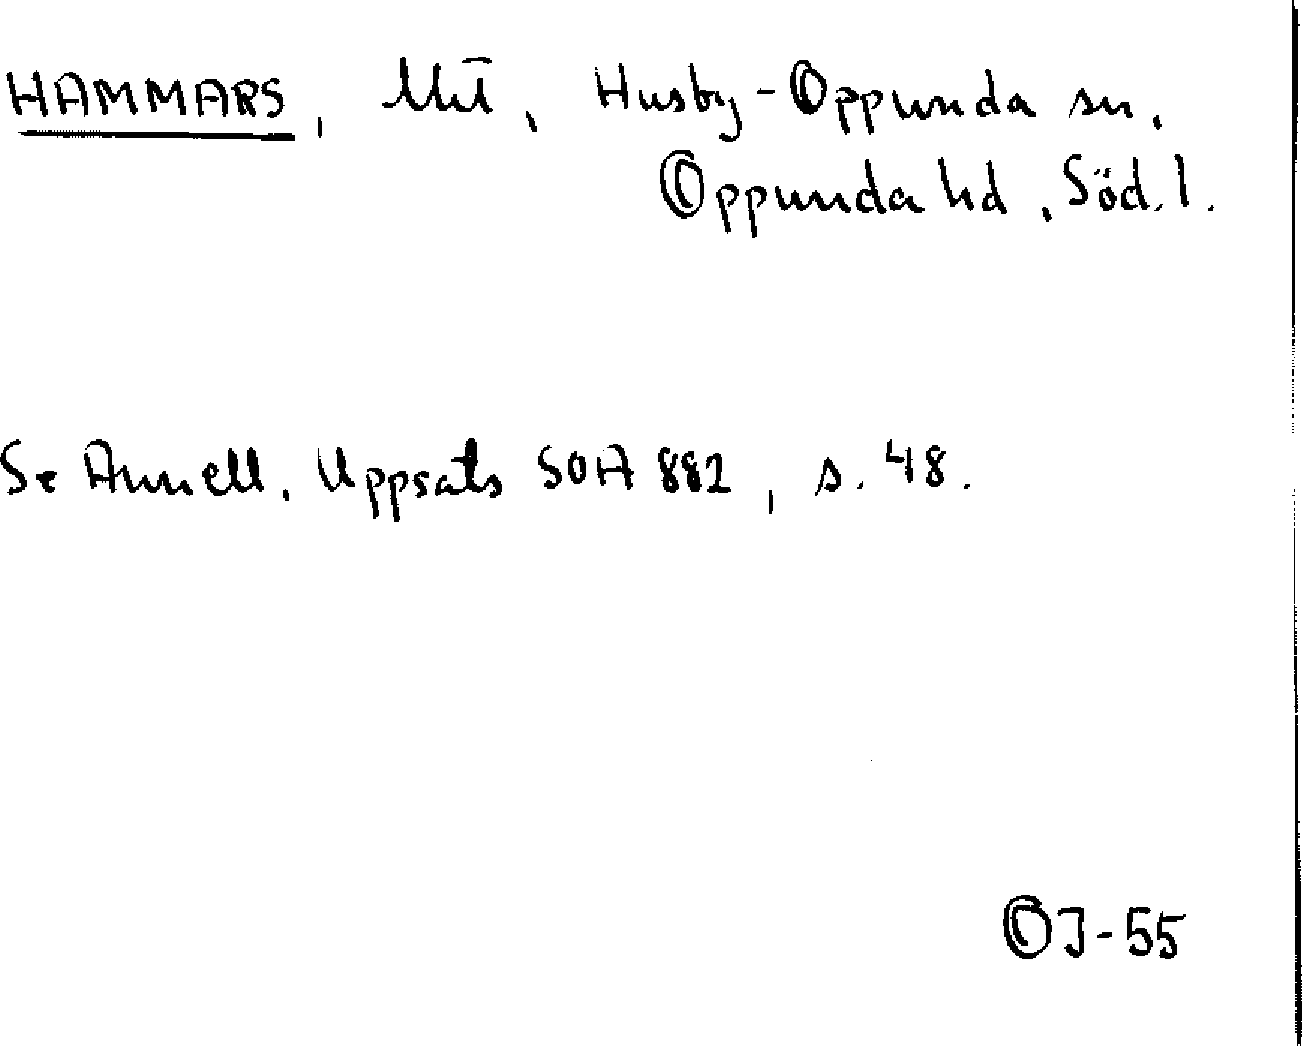 HAMMARS, Husby-Oppunda sn.
Oppunda hd, Söd.l.
Se Annell, Uppsats SOA 882, s. 48.
OJ-55